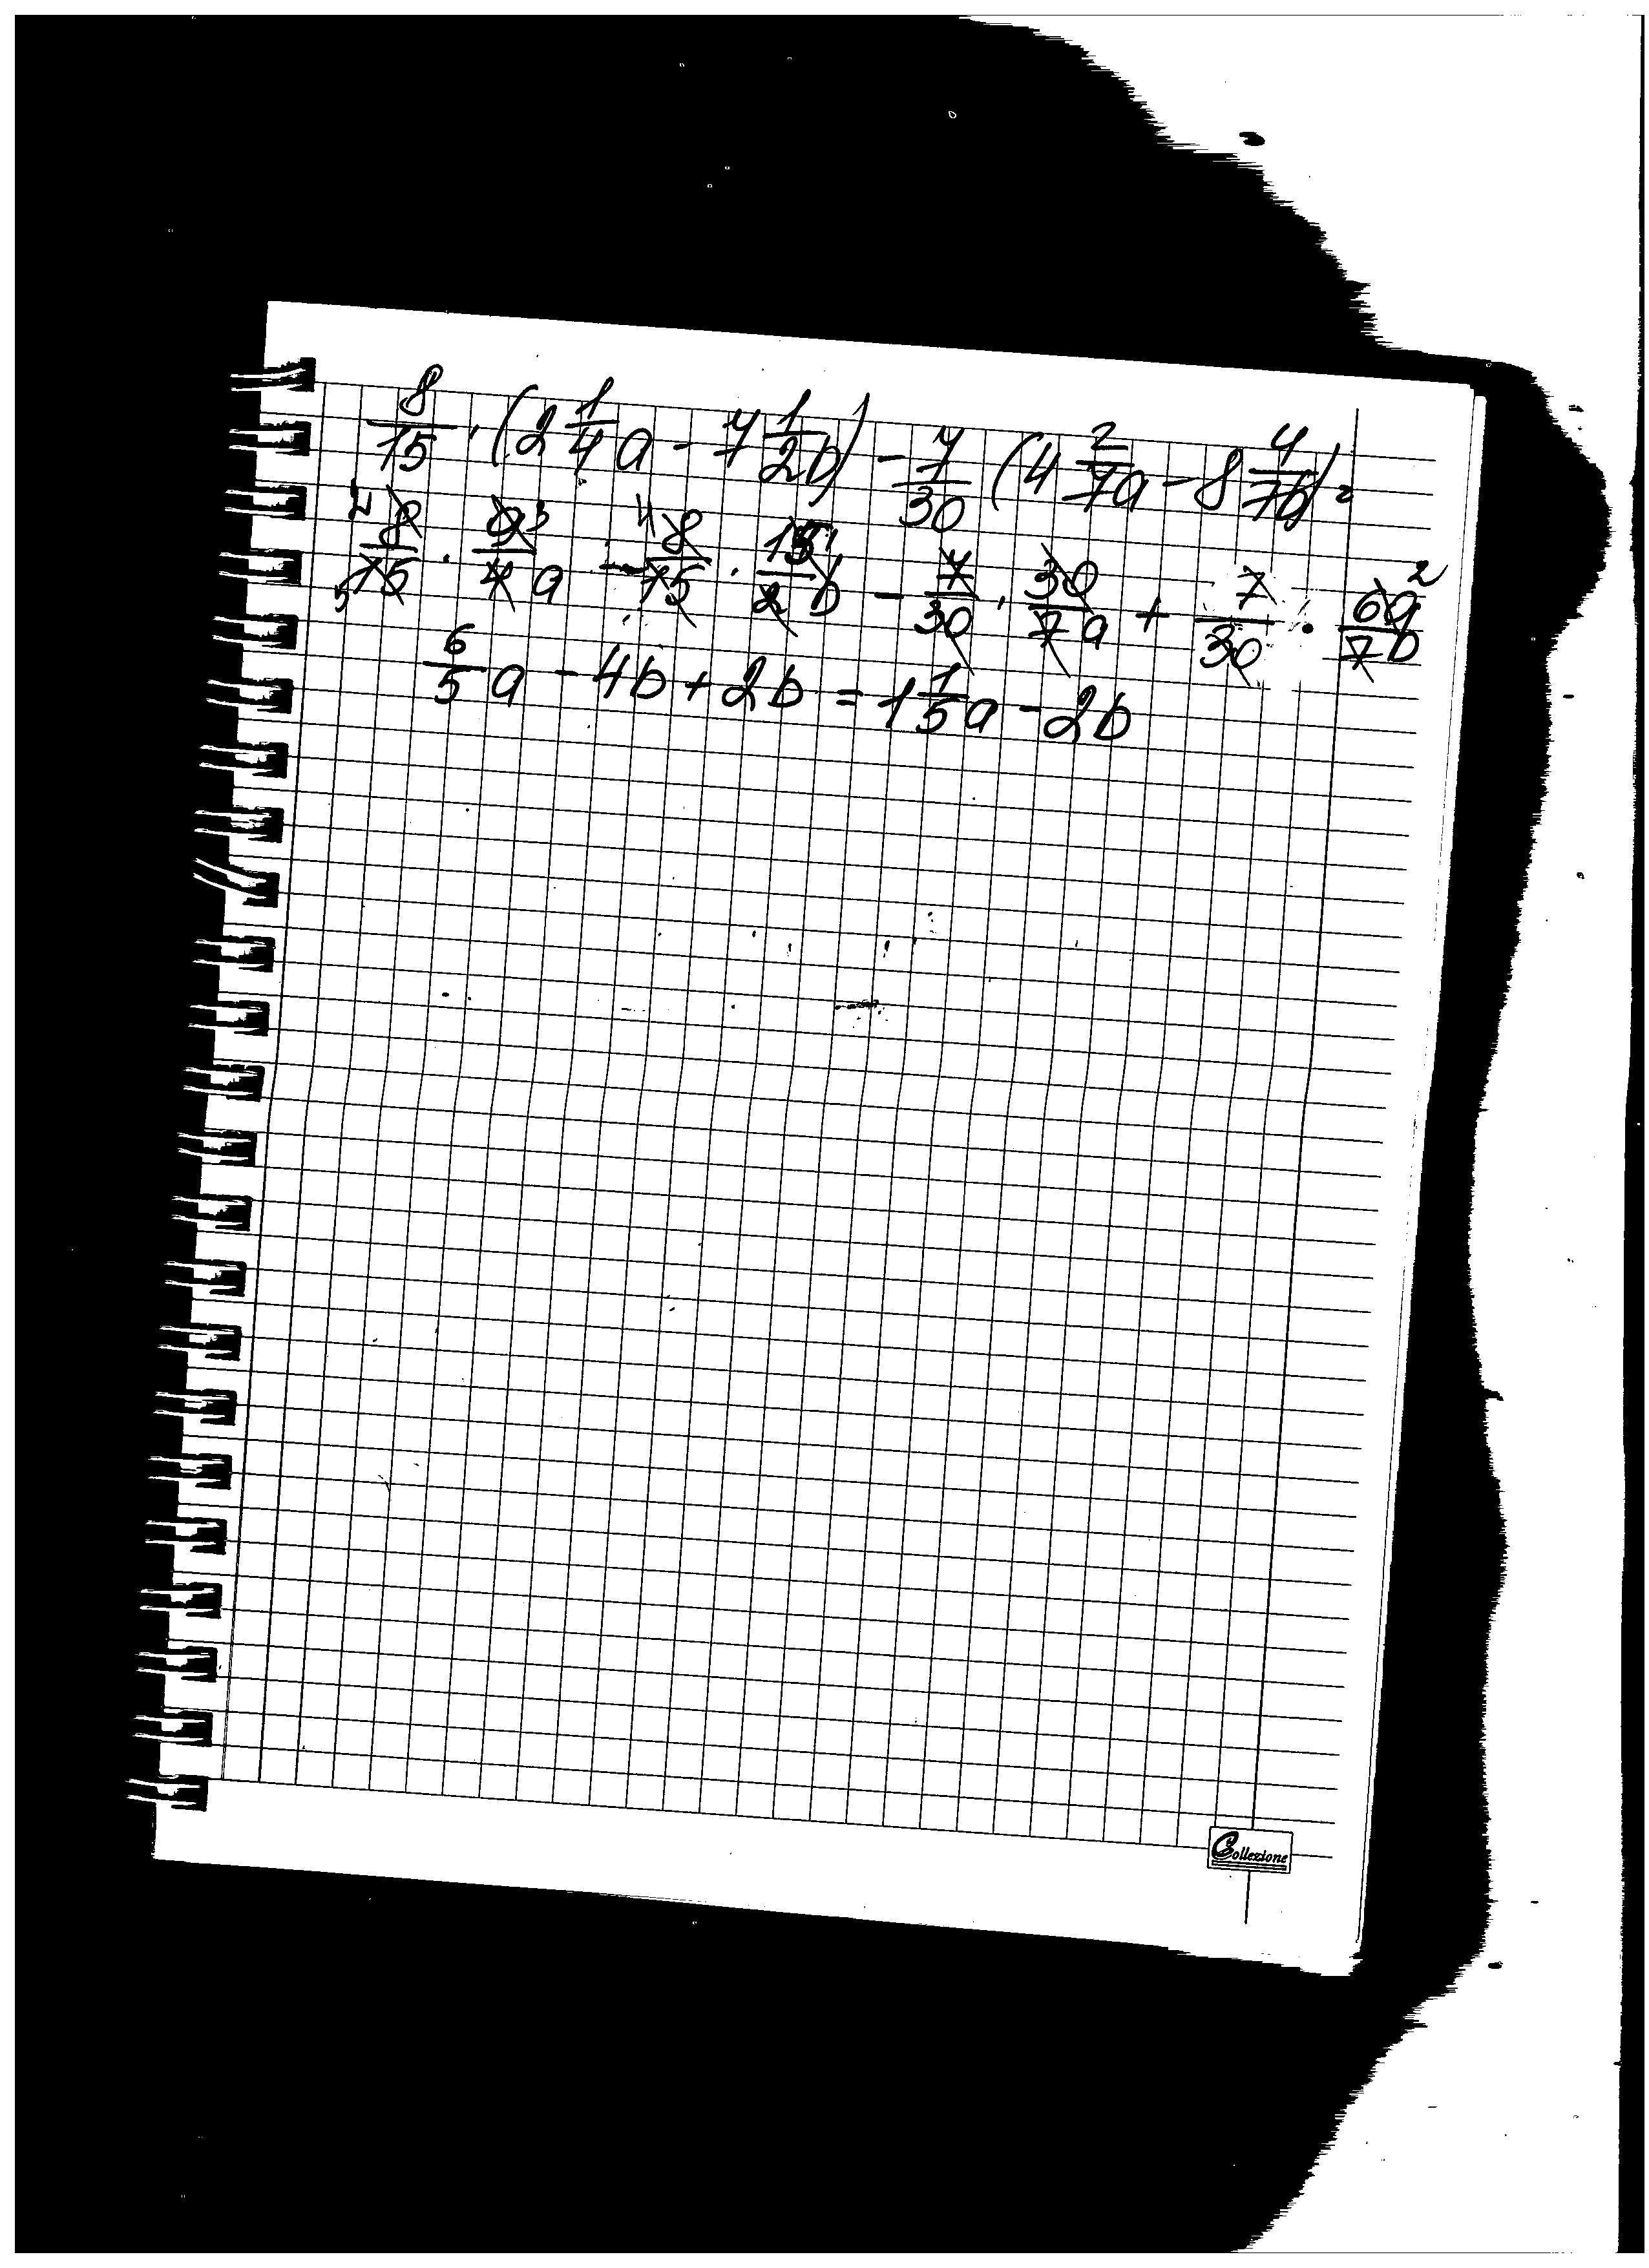 8/15 · (2 1/4 a - 7 1/2 b) - 7/30 (4 2/7 a - 8 4/7 b) =
8/15 · 9/4 a - 8/15 · 15/2 b - 7/30 · 30/7 a + 7/30 · 60/7 b
6/5 a - 4b + 2b = 1 1/5 a - 2b
Collezione